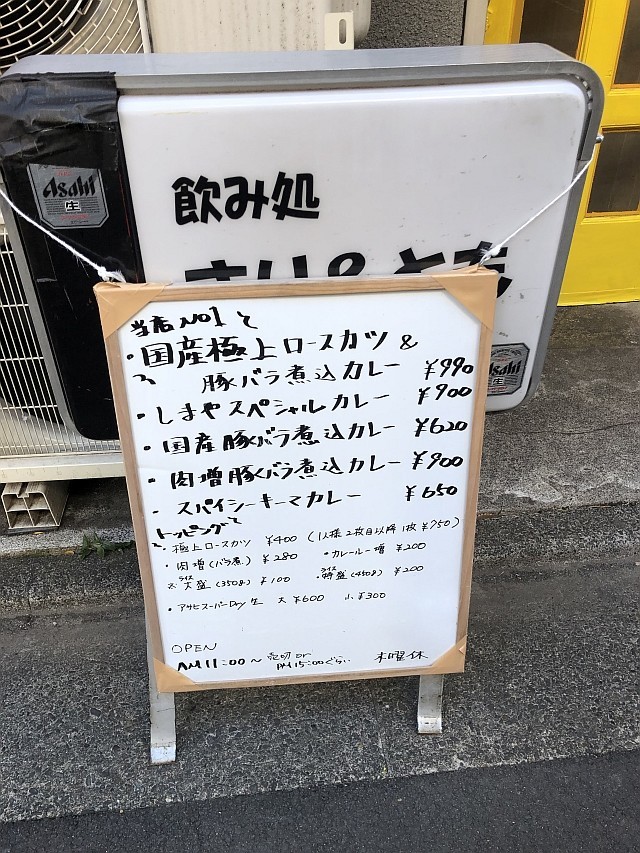 Asahi
生
飲み処
Asahi
当店No1
・国産極上ロースカツ &
豚バラ煮込カレー ¥990
・しまやスペシャルカレー ¥900
・国産豚バラ煮込カレー ¥620
・肉増豚バラ煮込カレー ¥900
・スパイシーキーマカレー ¥650
トッピング
・極上ロースカツ ¥400 (1人様 2枚目以降1枚¥750)
・肉増(バラ煮) ¥280 ・カレールー増 ¥200
ライス大盛(350g) ¥100 ・ライス特盛(450g) ¥200
・アサヒスーパーDry生 大¥600 小¥300
OPEN
AM11:00〜売切or PM15:00ぐらい 木曜休